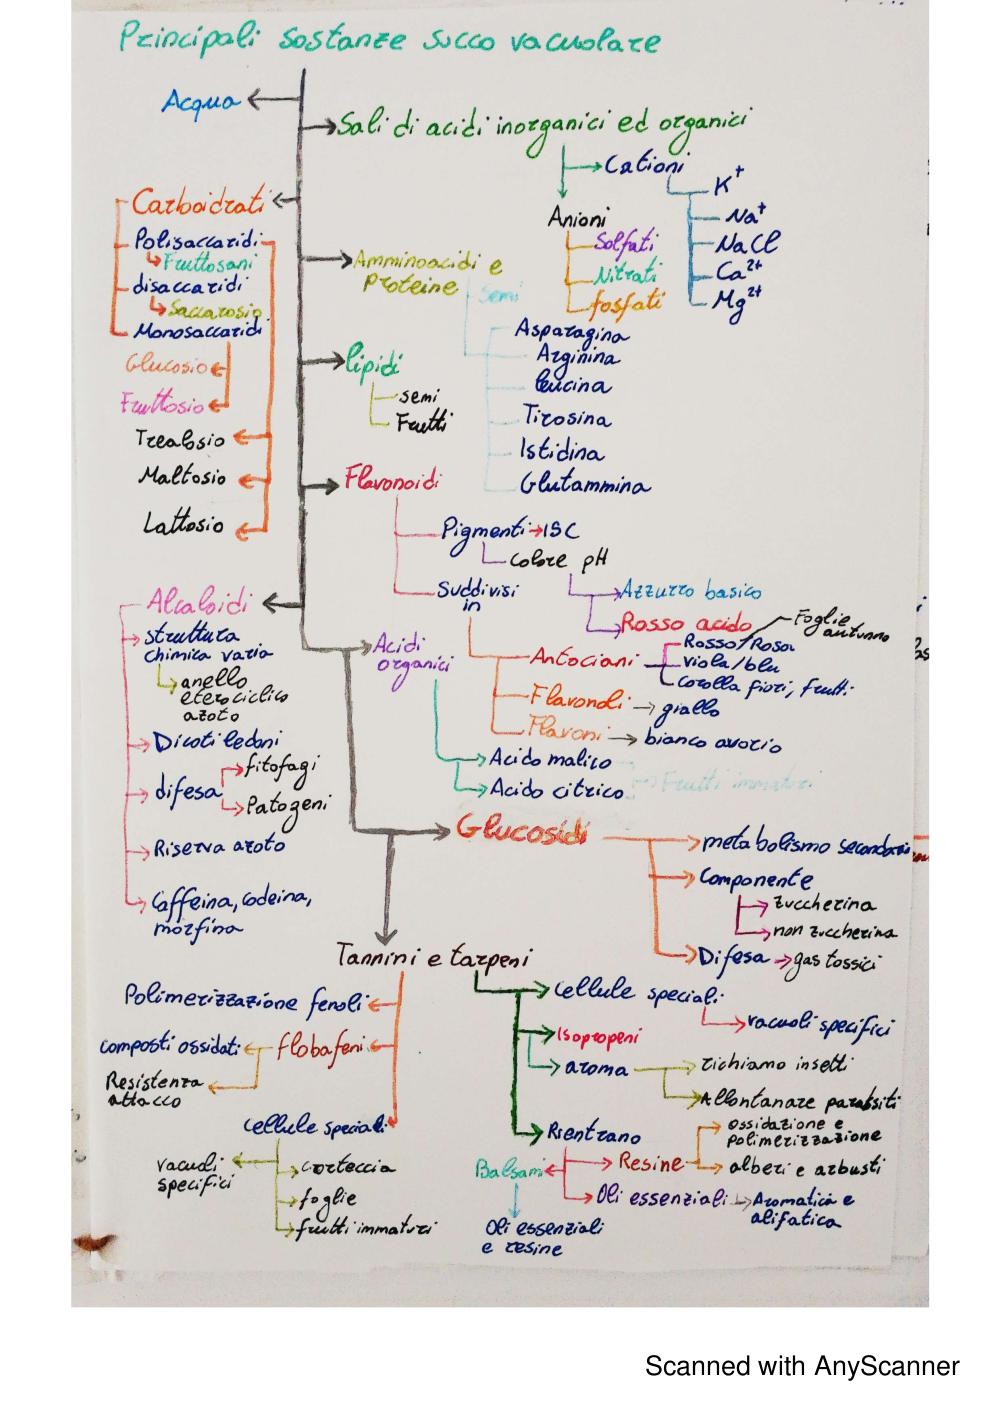 Principali sostanze succo vacuolare
Acqua
Sali di acidi inorganici ed organici
Cationi
K⁺
Na⁺
NaCl
Ca²⁺
Mg²⁺
Anioni
Solfati
Nitrati
fosfati
Carboidrati
Polisaccaridi
Fruttosani
disaccaridi
Saccarosio
Monosaccaridi
Glucosio
Fruttosio
Trealosio
Maltosio
Lattosio
Amminoacidi e
proteine
Semi
Asparagina
Arginina
leucina
Tirosina
Istidina
Glutammina
lipidi
semi
Frutti
Flavonoidi
Pigmenti → ISC
Colore pH
Azzurro basico
Rosso acido
Suddivisi
in
Antociani
Rosso/Rosa
Foglie
autunno
viola/blu
Corolla fiori, frutti
Flavonoli → giallo
Flavoni → bianco avorio
Alcaloidi
struttura
chimica varia
anello
eterociclico
azoto
Dicotiledoni
difesa
fitofagi
Patogeni
Riserva azoto
Caffeina, codeina,
morfina
Acidi
organici
Acido malico
Acido citrico
Frutti immaturi
Glucosidi
metabolismo secondario
Componente
zuccherina
non zuccherina
Difesa → gas tossici
Tannini e tarpeni
Polimerizzazione fenoli
flobafeni
composti ossidati
Resistenza
attacco
Cellule speciali
vacuoli
specifici
corteccia
foglie
frutti immaturi
Cellule speciali
vacuoli specifici
Isopropeni
aroma
richiamo insetti
Allontanare parassiti
Rientrano
Resine
ossidazione e
polimerizzazione
alberi e arbusti
Balsami
Oli essenziali
e resine
Oli essenziali
Aromatica e
alifatica
Scanned with AnyScanner